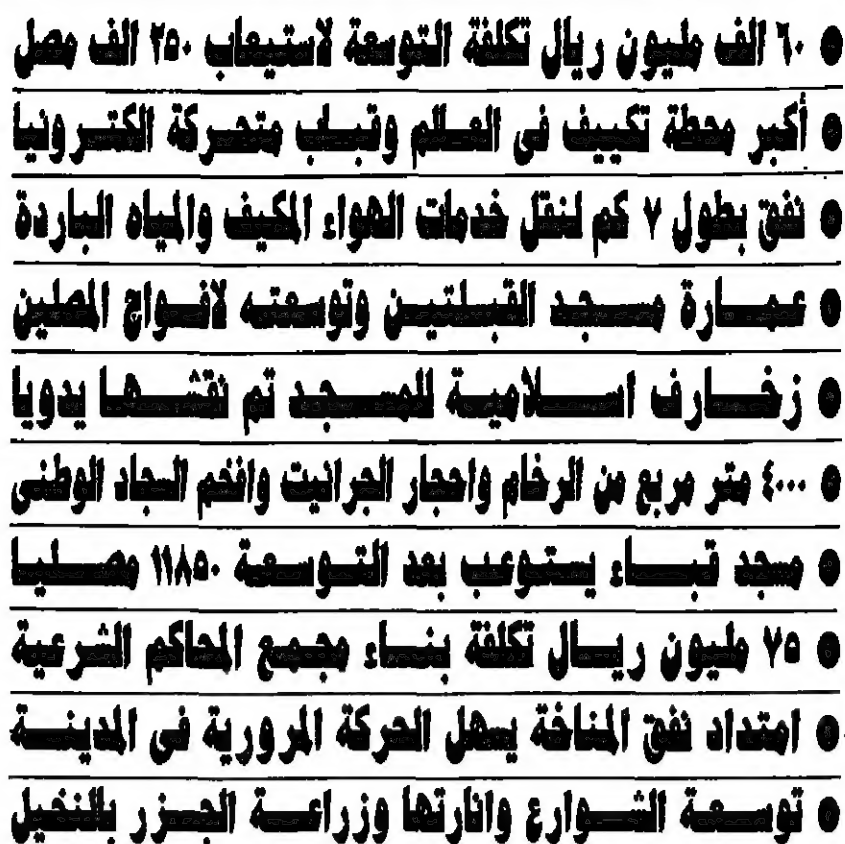 ● ٦٠ الف مليون ريال تكلفة التوسعة لاستيعاب ٢٥٠ الف مصل
● أكبر محطة تكييف فى العالم وقباب متحركة الكترونيا
● نفق بطول ٧ كم لنقل خدمات الهواء المكيف والمياه الباردة
● عمارة مسجد القبلتين وتوسعته لافواج المصلين
● زخارف اسلامية للمسجد تم نقشها يدويا
● ٤٠٠٠ متر مربع من الرخام واحجار الجرانيت وافخم السجاد الوطنى
● مسجد قباء يستوعب بعد التوسعة ١١٨٥٠ مصليا
● ٧٥ مليون ريال تكلفة بناء مجمع المحاكم الشرعية
● امتداد نفق المناخة يسهل الحركة المرورية فى المدينة
● توسعة الشوارع وانارتها وزراعة الجزر بالنخيل